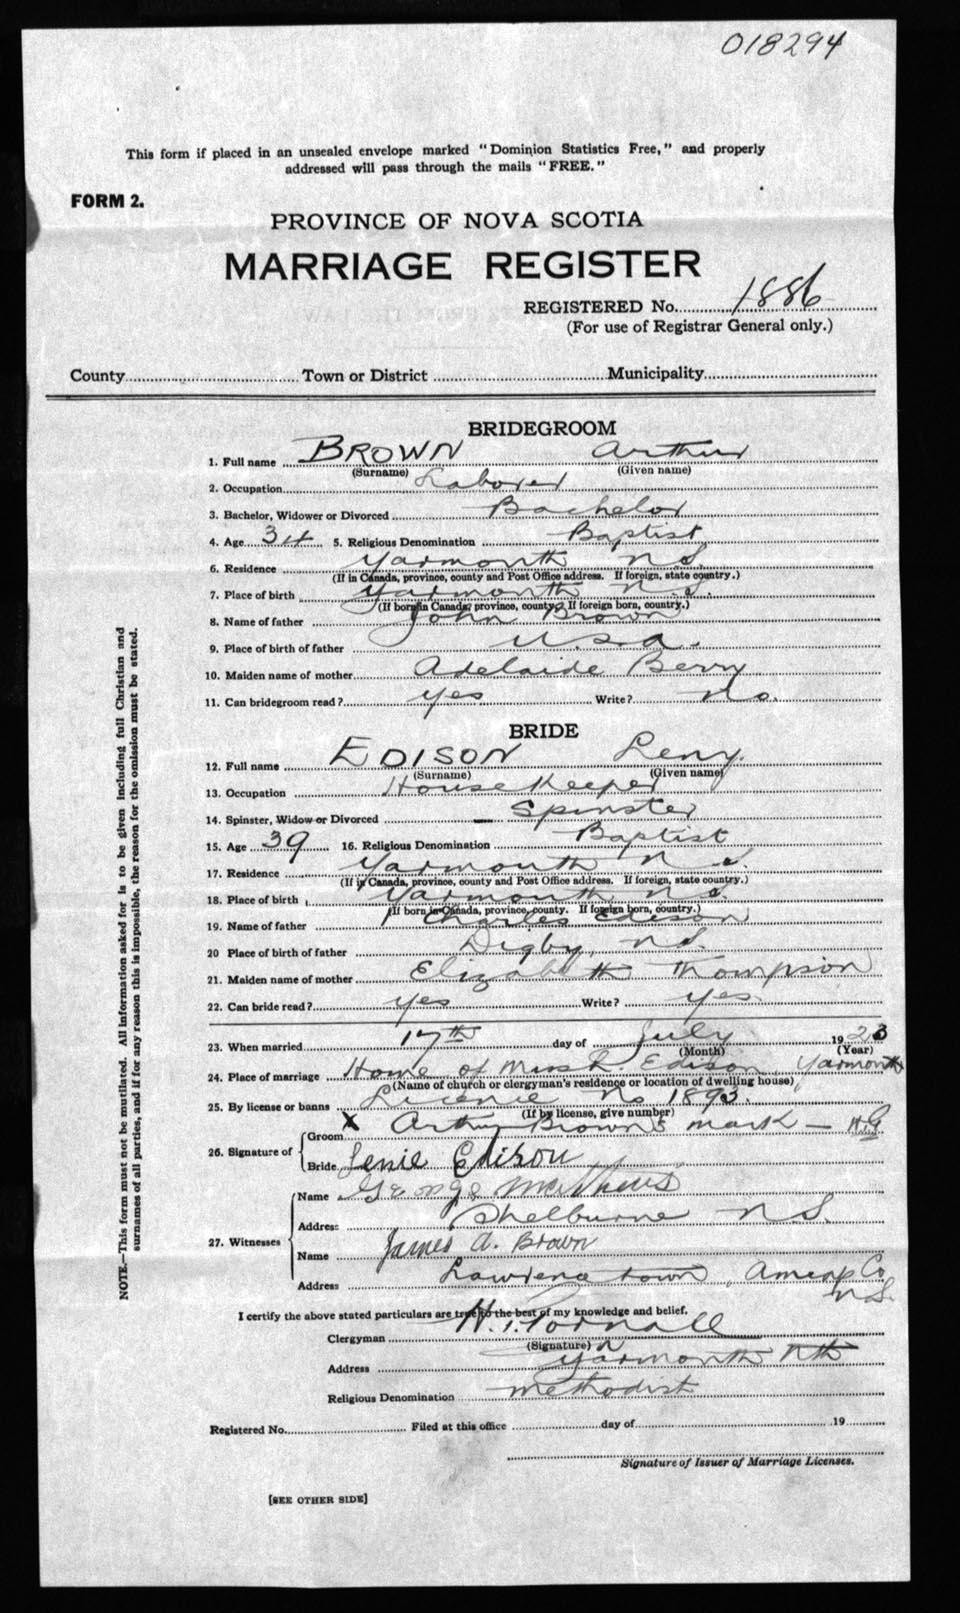 018294
This form if placed in an unsealed envelope marked "Dominion Statistics Free," and properly
addressed will pass through the mails "FREE."
FORM 2.
PROVINCE OF NOVA SCOTIA
MARRIAGE REGISTER
REGISTERED No. 1886
(For use of Registrar General only.)
County Town or District Municipality
BRIDEGROOM
1. Full name BROWN Arthur
(Surname) (Given name)
2. Occupation Laborer
3. Bachelor, Widower or Divorced Bachelor
4. Age 34 5. Religious Denomination Baptist
6. Residence Yarmouth N.S.
(If in Canada, province, county and Post Office address. If foreign, state country.)
7. Place of birth Yarmouth N.S.
(If born in Canada, province, county. If foreign born, country.)
8. Name of father John Brown
9. Place of birth of father U.S.A.
10. Maiden name of mother Adelaide Berry
11. Can bridegroom read? yes Write? No.
BRIDE
12. Full name EDISON Leny.
(Surname) (Given name)
13. Occupation House Keeper
14. Spinster, Widow or Divorced – Spinster
15. Age 39 16. Religious Denomination Baptist
17. Residence Yarmouth N.S.
(If in Canada, province, county and Post Office address. If foreign, state country.)
18. Place of birth Yarmouth N.S.
(If born in Canada, province, county. If foreign born, country.)
19. Name of father Charles Edison
20 Place of birth of father Digby, N.S.
21. Maiden name of mother Elizabeth Thompson
22. Can bride read? yes Write? yes.
23. When married 17th day of July 1923
(Month) (Year)
24. Place of marriage Home of Miss L. Edison, Yarmouth
(Name of church or clergyman's residence or location of dwelling house)
25. By license or banns Licence No 1893.
(If by license, give number)
26. Signature of
Groom X Arthur Brown's mark –
Bride Lenie Edison
27. Witnesses
Name George Matthews
Address Shelburne N.S.
Name James A. Brown
Address Lawrencetown, Annap Co
N.S.
I certify the above stated particulars are true to the best of my knowledge and belief.
Clergyman
(Signature)
Address Yarmouth Nth
Religious Denomination Methodist
Registered No. Filed at this office day of 19
Signature of Issuer of Marriage Licenses.
[SEE OTHER SIDE]
NOTE.—This form must not be mutilated. All information asked for is to be given including full Christian and
surnames of all parties, and if for any reason this is impossible, the reason for the omission must be stated.